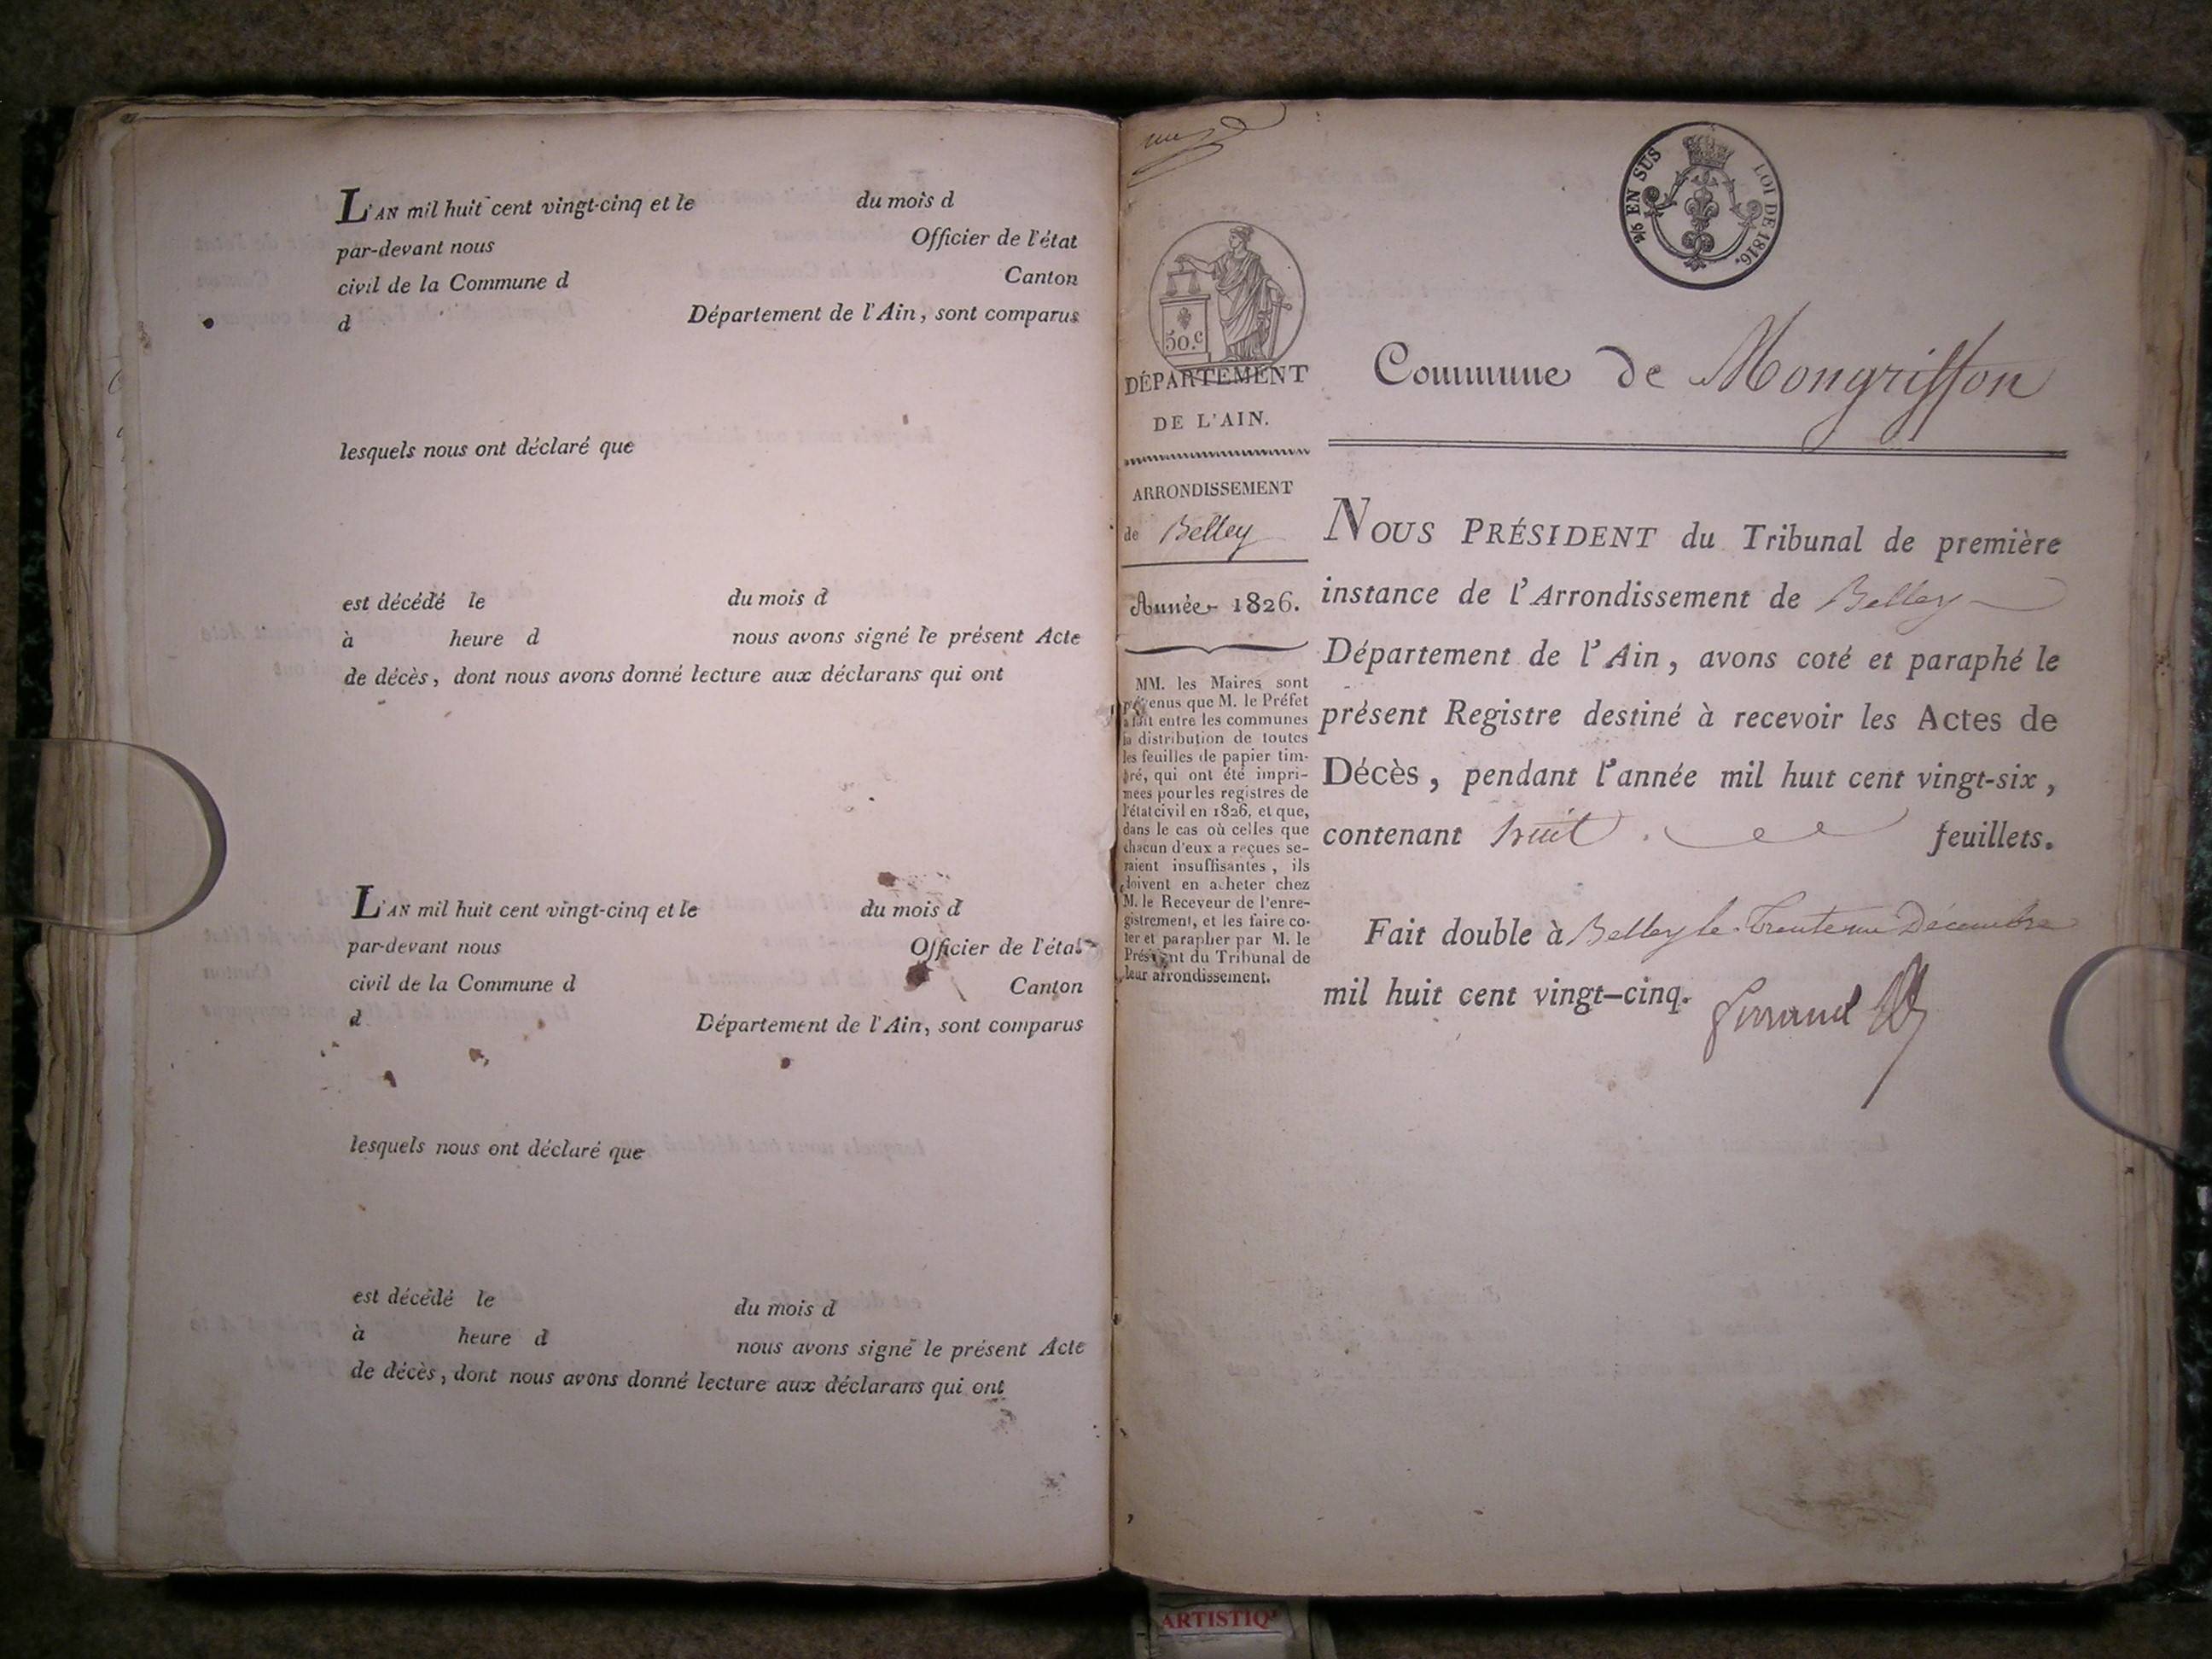 L'AN mil huit cent vingt-cinq et le du mois d
par-devant nous Officier de l'état
civil de la Commune d Canton
d Département de l'Ain, sont comparus
lesquels nous ont déclaré que
est décédé le du mois d
à heure d nous avons signé le présent Acte
de décès, dont nous avons donné lecture aux déclarans qui ont
L'AN mil huit cent vingt-cinq et le du mois d
par-devant nous Officier de l'état
civil de la Commune d Canton
d Département de l'Ain, sont comparus
lesquels nous ont déclaré que
est décédé le du mois d
à heure d nous avons signé le présent Acte
de décès, dont nous avons donné lecture aux déclarans qui ont
50.c
DÉPARTEMENT
DE L'AIN.
ARRONDISSEMENT
de Belley
Année 1826.
MM. les Maires sont
prévenus que M. le Préfet
a fait entre les communes
la distribution de toutes
les feuilles de papier tim-
bré, qui ont été impri-
mées pour les registres de
l'état civil en 1826, et que,
dans le cas où celles que
chacun d'eux a reçues se-
raient insuffisantes, ils
doivent en acheter chez
M. le Receveur de l'enre-
gistrement, et les faire co-
ter et parapher par M. le
Président du Tribunal de
leur arrondissement.
EN SUS LOI DE 1816.
Commune de Mongriffon
NOUS PRÉSIDENT du Tribunal de première
instance de l'Arrondissement de Belley
Département de l'Ain, avons coté et paraphé le
présent Registre destiné à recevoir les Actes de
Décès, pendant l'année mil huit cent vingt-six,
contenant huit feuillets.
Fait double à Belley le trente un Décembre
mil huit cent vingt-cinq.
ARTISTIQ